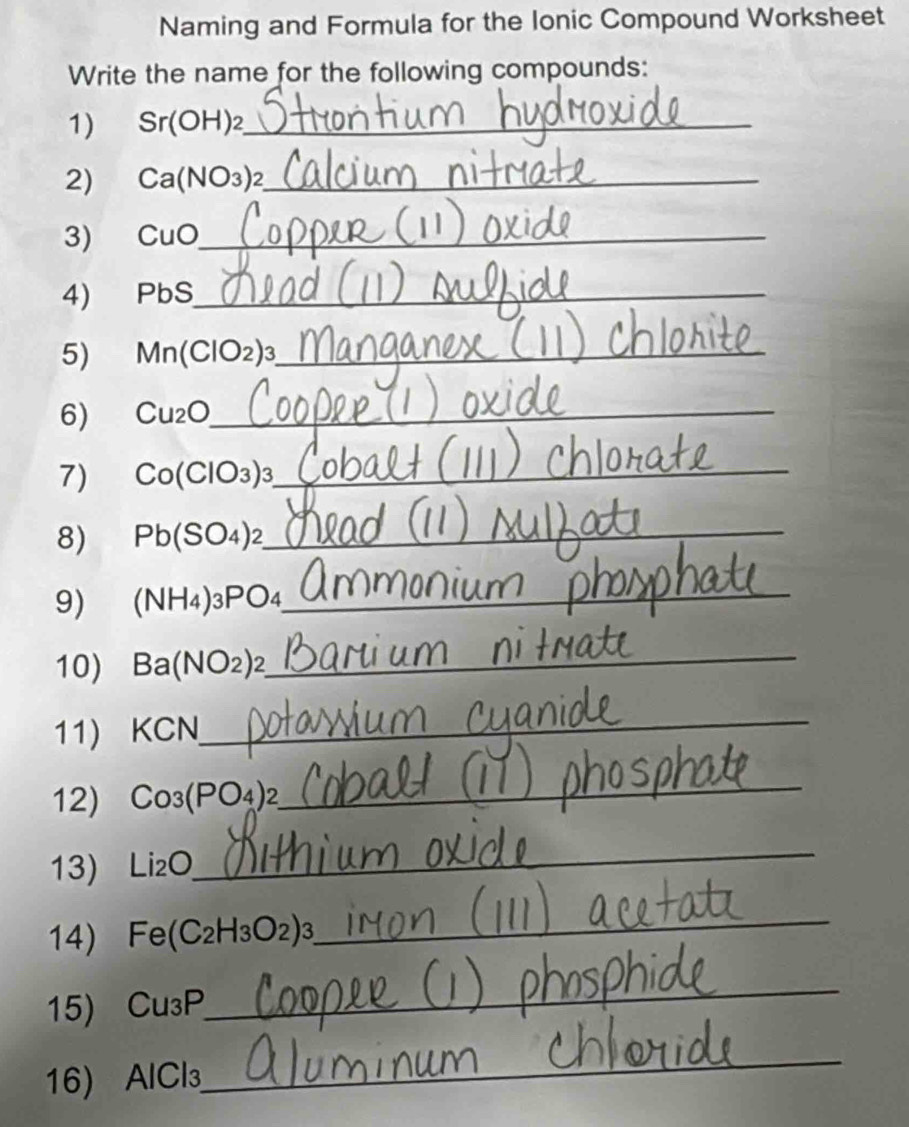 Naming and Formula for the Ionic Compound Worksheet
Write the name for the following compounds:
1) Sr(OH)2 Strontium hydroxide
2) Ca(NO3)2 Calcium nitrate
3) CuO Copper (11) oxide
4) PbS Lead (11) sulfide
5) Mn(ClO2)3 Manganese (11) chlorite
6) Cu2O Cooper (1) oxide
7) Co(ClO3)3 Cobalt (111) chlorate
8) Pb(SO4)2 Lead (11) sulfate
9) (NH4)3PO4 ammonium phosphate
10) Ba(NO2)2 Barium nitrate
11) KCN potassium cyanide
12) Co3(PO4)2 Cobalt (11) phosphate
13) Li2O Lithium oxide
14) Fe(C2H3O2)3 iron (111) acetate
15) Cu3P Cooper (1) phosphide
16) AlCl3 aluminum chloride